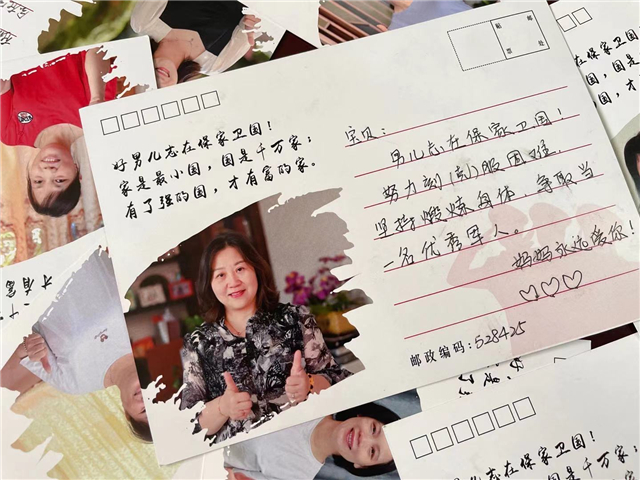 贴 邮
票 处
好男儿志在保家卫国！
家是最小国，国是千万家；
有了强的国，才有富的家。
宝贝：
男儿志在保家卫国！
努力 服困难，
坚持煅炼身体 争取当
一名优秀军人。
妈妈永远爱你！
邮政编码：528425
在保家卫国！
国，国是
国，才
才有富
好男儿志在保家卫国！
家是最小国，国是千万家；